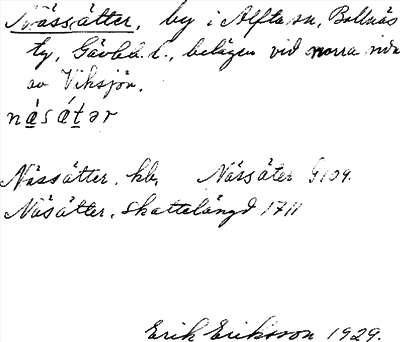 Nässätter, by i Alfta sn, Bollnäs
tg, Gävleb. l., belägen vid norra
av Viksjön.
nässätər
Nässätter, kb, Närsäter G109.
Näsätter, Skattelängd 1711
Erik Eriksson 1929.